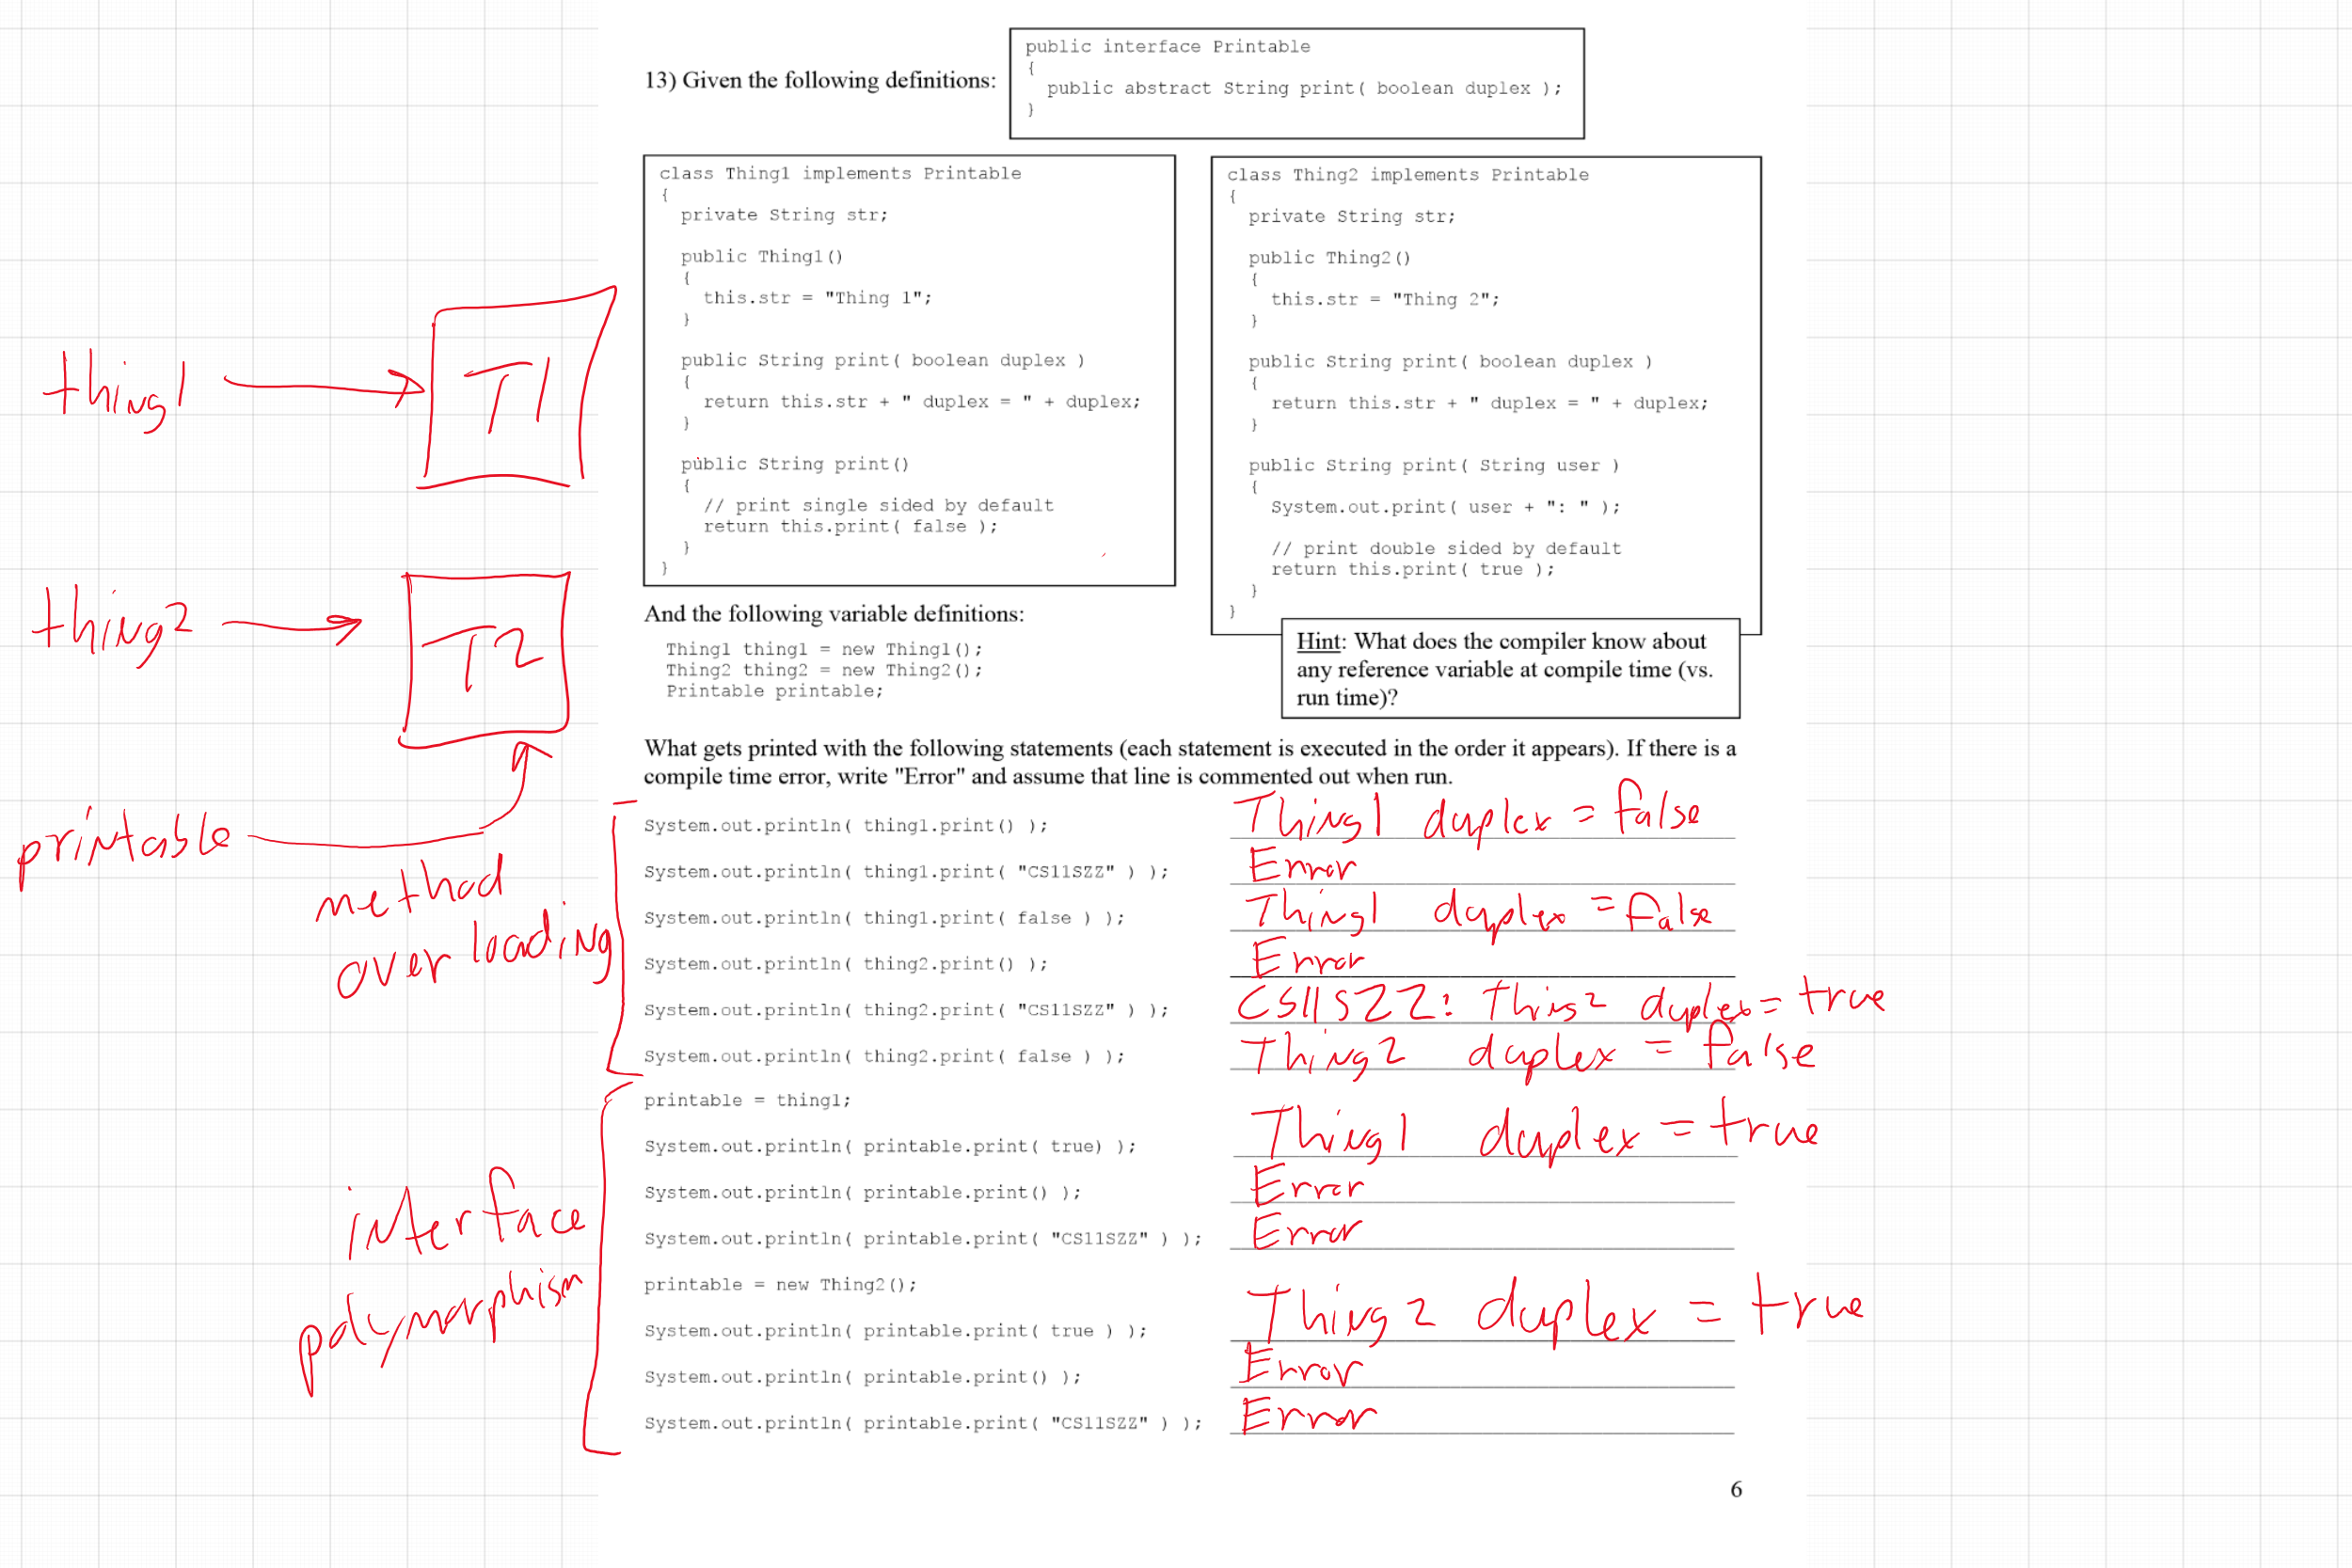 13) Given the following definitions:
public interface Printable
{
public abstract String print( boolean duplex );
}
class Thing1 implements Printable
{
private String str;
public Thing1()
{
this.str = "Thing 1";
}
public String print( boolean duplex )
{
return this.str + " duplex = " + duplex;
}
public String print()
{
// print single sided by default
return this.print( false );
}
}
class Thing2 implements Printable
{
private String str;
public Thing2()
{
this.str = "Thing 2";
}
public String print( boolean duplex )
{
return this.str + " duplex = " + duplex;
}
public String print( String user )
{
System.out.print( user + ": " );
// print double sided by default
return this.print( true );
}
}
thing1
T1
thing2
T2
printable
And the following variable definitions:
Thing1 thing1 = new Thing1();
Thing2 thing2 = new Thing2();
Printable printable;
Hint: What does the compiler know about
any reference variable at compile time (vs.
run time)?
What gets printed with the following statements (each statement is executed in the order it appears). If there is a
compile time error, write "Error" and assume that line is commented out when run.
method
overloading
System.out.println( thing1.print() ); Thing1 duplex = false
System.out.println( thing1.print( "CS11SZZ" ) ); Error
System.out.println( thing1.print( false ) ); Thing1 duplex = false
System.out.println( thing2.print() ); Error
System.out.println( thing2.print( "CS11SZZ" ) ); CS11SZZ: This2 duplex = true
System.out.println( thing2.print( false ) ); Thing2 duplex = false
interface
polymorphism
printable = thing1;
System.out.println( printable.print( true) ); Thing1 duplex = true
System.out.println( printable.print() ); Error
System.out.println( printable.print( "CS11SZZ" ) ); Error
printable = new Thing2();
System.out.println( printable.print( true ) ); Thing2 duplex = true
System.out.println( printable.print() ); Error
System.out.println( printable.print( "CS11SZZ" ) ); Error
6